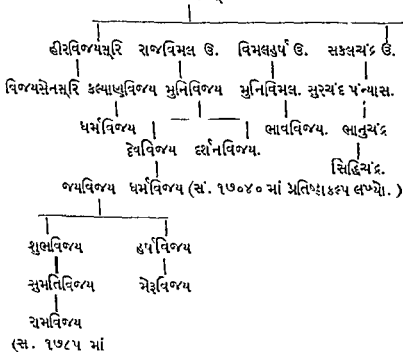 હીરવિજયસૂરિ રાજવિમલ ઉ. વિમલહર્ષ ઉ. સકલચંદ્ર ઉ.
વિજયસેનસૂરિ કલ્યાણવિજય મુનિવિજય મુનિવિમલ. સુરચંદ પંન્યાસ.
ધર્મવિજય ભાવવિજય. ભાનુચંદ્ર
દેવવિજય દર્શનવિજય.
સિદ્ધિચંદ્ર.
જયવિજય ધર્મવિજય (સં. ૧૭૦૪૦ માં પ્રતિષ્ઠાકલ્પ લખ્યો. )
શુભવિજય હર્ષવિજય
સુમતિવિજય મેરૂવિજય
રામવિજય
(સ. ૧૭૮૫ માં